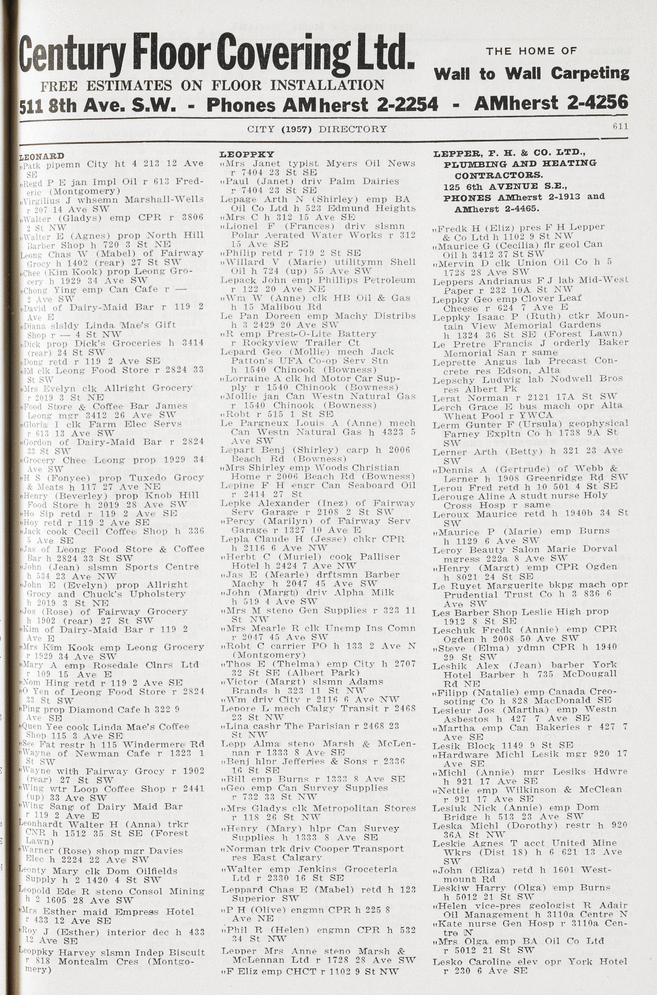 Century Floor Covering Ltd.
FREE ESTIMATES ON FLOOR INSTALLATION
THE HOME OF
Wall to Wall Carpeting
511 8th Ave. S.W. - Phones AMherst 2-2254 - AMherst 2-4256
CITY (1957) DIRECTORY
611
LEONARD
"Patk pipemn City ht 4 213 12 Ave
SE
"Regd P E jan Impl Oil r 613 Fred-
eric (Montgomery)
"Virgilius J whsemn Marshall-Wells
r 207 14 Ave SW
"Walter (Gladys) emp CPR r 3806
2 St NW
"Walter E (Agnes) prop North Hill
Barber Shop h 720 3 St NE
Leong Chas W (Mabel) of Fairway
Grocy h 1402 (rear) 27 St SW
"Chee (Kim Kook) prop Leong Gro-
cery h 1929 34 Ave SW
"Chong Ying emp Can Cafe r —
2 Ave SW
"David of Dairy-Maid Bar r 119 2
Ave E
"Diana slsldy Linda Mae's Gift
Shop r — 4 St NW
"Dick prop Dick's Groceries h 3414
(rear) 24 St SW
"Dong retd r 119 2 Ave SE
"Ed clk Leong Food Store r 2824 33
St SW
"Mrs Evelyn clk Allright Grocery
r 2019 3 St NE
"Food Store & Coffee Bar James
Leong mgr 3412 26 Ave SW
"Gloria I clk Farm Elec Servs
r 613 13 Ave SW
"Gordon of Dairy-Maid Bar r 2824
33 St SW
"Grocery Chee Leong prop 1929 34
Ave SW
"H S (Fonyee) prop Tuxedo Grocy
& Meats h 117 27 Ave NE
"Henry (Beverley) prop Knob Hill
Food Store h 2019 28 Ave SW
"Ho Sip retd r 119 2 Ave SE
"Hoy retd r 119 2 Ave SE
"Jack cook Cecil Coffee Shop h 336
5 Ave SW
"Jas of Leong Food Store & Coffee
Bar h 2824 33 St SW
"John (Jean) slsmn Sports Centre
h 534 23 Ave NW
"John E (Evelyn) prop Allright
Grocy and Chuck's Upholstery
h 2019 3 St NE
"Jos (Rose) of Fairway Grocery
h 1902 (rear) 27 St SW
"Kim of Dairy-Maid Bar r 119 2
Ave E
"Mrs Kim Kook emp Leong Grocery
r 1929 34 Ave SW
"Mary A emp Rosedale Clnrs Ltd
r 109 15 Ave E
"Nom Hing retd r 119 2 Ave SE
"O Yen of Leong Food Store r 2824
33 St SW
"Ping prop Diamond Cafe h 322 9
Ave SE
"Quen Yee cook Linda Mae's Coffee
Shop 115 3 Ave SE
"See Fat restr h 115 Windermere Rd
"Wayne of Newman Cafe r 1323 1
St SW
"Wayne with Fairway Grocy r 1902
(rear) 27 St SW
"Wing wtr Loop Coffee Shop r 2441
(up) 33 Ave SW
"Wing Sang of Dairy Maid Bar
r 119 2 Ave E
Leonhardt Walter H (Anna) trkr
CNR h 1512 35 St SE (Forest
Lawn)
"Warner (Rose) shop mgr Davies
Elec h 2224 22 Ave SW
Leonty Mary clk Dom Oilfields
Supply h 2 1420 4 St SW
Leopold Ede R steno Consol Mining
h 2 1605 28 Ave SW
"Mrs Esther maid Empress Hotel
r 433 12 Ave SE
"Roy J (Esther) interior dec h 433
12 Ave SE
Leoppky Harvey slsmn Indep Biscuit
r 818 Montcalm Cres (Montgo-
mery)
LEOPPKY
"Mrs Janet typist Myers Oil News
r 7404 23 St SE
"Paul (Janet) driv Palm Dairies
r 7404 23 St SE
Lepage Arth N (Shirley) emp BA
Oil Co Ltd h 523 Edmund Heights
"Mrs C h 312 15 Ave SE
"Lionel F (Frances) driv slsmn
Polar Aerated Water Works r 312
15 Ave SE
"Philip retd r 719 2 St SE
"Willard V (Marie) utiltymn Shell
Oil h 724 (up) 55 Ave SW
Lepack John emp Phillips Petroleum
r 122 20 Ave NE
"Wm W (Anne) clk HB Oil & Gas
h 15 Malibou Rd
Le Pan Doreen emp Machy Distribs
h 3 2429 20 Ave SW
"R emp Prest-O-Lite Battery
r Rockyview Trailer Ct
Lepard Geo (Mollie) mech Jack
Patton's UFA Co-op Serv Stn
h 1540 Chinook (Bowness)
"Lorraine A clk hd Motor Car Sup-
ply r 1540 Chinook (Bowness)
"Mollie jan Can Westn Natural Gas
r 1540 Chinook (Bowness)
"Robt r 515 1 St SE
Le Pargneux Louis A (Anne) mech
Can Westn Natural Gas h 4323 5
Ave SW
Lepart Benj (Shirley) carp h 2006
Beach Rd (Bowness)
"Mrs Shirley emp Woods Christian
Home r 2006 Beach Rd (Bowness)
Lepine F H engr Can Seaboard Oil
r 2414 27 St
Lepke Alexander (Inez) of Fairway
Serv Garage r 2108 2 St SW
"Percy (Marilyn) of Fairway Serv
Garage r 1327 10 Ave E
Lepla Claude H (Jesse) chkr CPR
h 2116 6 Ave NW
"Herbt C (Muriel) cook Palliser
Hotel h 2424 7 Ave NW
"Jas E (Mearle) drftsmn Barber
Machy h 2047 45 Ave SW
"John (Margt) driv Alpha Milk
h 519 4 Ave SW
"Mrs M steno Gen Supplies r 323 11
St NW
"Mrs Mearle R clk Unemp Ins Comn
r 2047 45 Ave SW
"Robt C carrier PO h 133 2 Ave N
(Montgomery)
"Thos E (Thelma) emp City h 2707
32 St SE (Albert Park)
"Victor (Margt) slsmn Adams
Brands h 323 11 St NW
"Wm driv City r 2116 6 Ave NW
Lenore L mech Calgy Transit r 2468
23 St NW
"Lina cashr The Parisian r 2468 23
St NW
Lepp Alma steno Marsh & McLen-
nan r 1333 8 Ave SE
"Benj hlnr Jefferies & Sons r 2336
16 St SE
"Bill emp Burns r 1333 8 Ave SE
"Geo emp Can Survey Supplies
r 732 33 St NW
"Mrs Gladys clk Metropolitan Stores
r 118 26 St NW
"Henry (Mary) hlpr Can Survey
Supplies h 1333 8 Ave SE
"Norman trk driv Cooper Transport
res East Calgary
"Walter emp Jenkins Groceteria
Ltd r 2330 16 St SE
Leppard Chas E (Mabel) retd h 123
Superior SW
"P H (Olive) engmn CPR h 225 8
Ave NE
"Phil R (Helen) engmn CPR h 532
34 St NW
Lepper Mrs Anne steno Marsh &
McLennan Ltd r 1728 28 Ave SW
"F Eliz emp CHCT r 1102 9 St NW
LEPPER, F. H. & CO. LTD.,
PLUMBING AND HEATING
CONTRACTORS.
125 6th AVENUE S.E.,
PHONES AMherst 2-1913 and
AMherst 2-4465.
"Fredk H (Eliz) pres F H Lepper
& Co Ltd h 1102 9 St NW
"Maurice G (Cecilia) flr geol Can
Oil h 3412 37 St SW
"Mervin D clk Union Oil Co h 5
1728 28 Ave SW
Leppers Andrianus F J lab Mid-West
Paper r 232 10A St NW
Leppky Geo emp Clover Leaf
Cheese r 624 7 Ave E
Leppky Isaac P (Ruth) ctkr Moun-
tain View Memorial Gardens
h 1324 36 St SE (Forest Lawn)
Le Pretre Francis J orderly Baker
Memorial San r same
Leprette Angus lab Precast Con-
crete res Edson, Alta
Lepschy Ludwig lab Nodwell Bros
res Albert Pk
Lerat Norman r 2121 17A St SW
Lerch Grace E bus mach opr Alta
Wheat Pool r YWCA
Lerm Gunter F (Ursula) geophysical
Farney Expltn Co h 1738 9A St
SW
Lerner Arth (Betty) h 321 23 Ave
SW
"Dennis A (Gertrude) of Webb &
Lerner h 1908 Greenridge Rd SW
Lerou Fred retd h 10 501 4 St SE
Lerouge Aline A studt nurse Holy
Cross Hosp r same
Leroux Maurice retd h 1940b 34 St
SW
"Maurice P (Marie) emp Burns
h 1129 6 Ave SW
Leroy Beauty Salon Marie Dorval
mgress 222a 8 Ave SW
"Henry (Margt) emp CPR Ogden
h 8021 24 St SE
Le Ruyet Marguerite bkpg mach opr
Prudential Trust Co h 3 836 6
Ave SW
Les Barber Shop Leslie High prop
1912 8 St SE
Leschuk Fredk (Annie) emp CPR
Ogden h 2008 50 Ave SW
"Steve (Elma) ydmn CPR h 1940
29 St SW
Leshik Alex (Jean) barber York
Hotel Barber h 735 McDougall
Rd NE
"Filipp (Natalie) emp Canada Creo-
soting Co h 828 MacDonald SE
Lesieur Jos (Martha) emp Westn
Asbestos h 427 7 Ave SE
"Martha emp Can Bakeries r 427 7
Ave SE
Lesik Block 1149 9 St SE
"Hardware Michl Lesik mgr 920 17
Ave SE
"Michl (Annie) mgr Lesiks Hdwre
h 921 17 Ave SE
"Nettie emp Wilkinson & McClean
r 921 17 Ave SE
Lesiuk Nick (Annie) emp Dom
Bridge h 513 23 Ave SW
Leska Michl (Dorothy) restr h 920
36A St NW
Leskie Agnes T acct United Mine
Wkrs (Dist 18) h 6 621 13 Ave
SW
"John (Eliza) retd h 1601 West-
mount Rd
Leskiw Harry (Olga) emp Burns
h 5012 21 St SW
"Helen vice-pres geologist R Adair
Oil Management h 3110a Centre N
"Kate nurse Gen Hosp r 3110a Cen-
tre N
"Mrs Olga emp BA Oil Co Ltd
r 5012 21 St SW
Lesko Caroline elev opr York Hotel
r 230 6 Ave SE